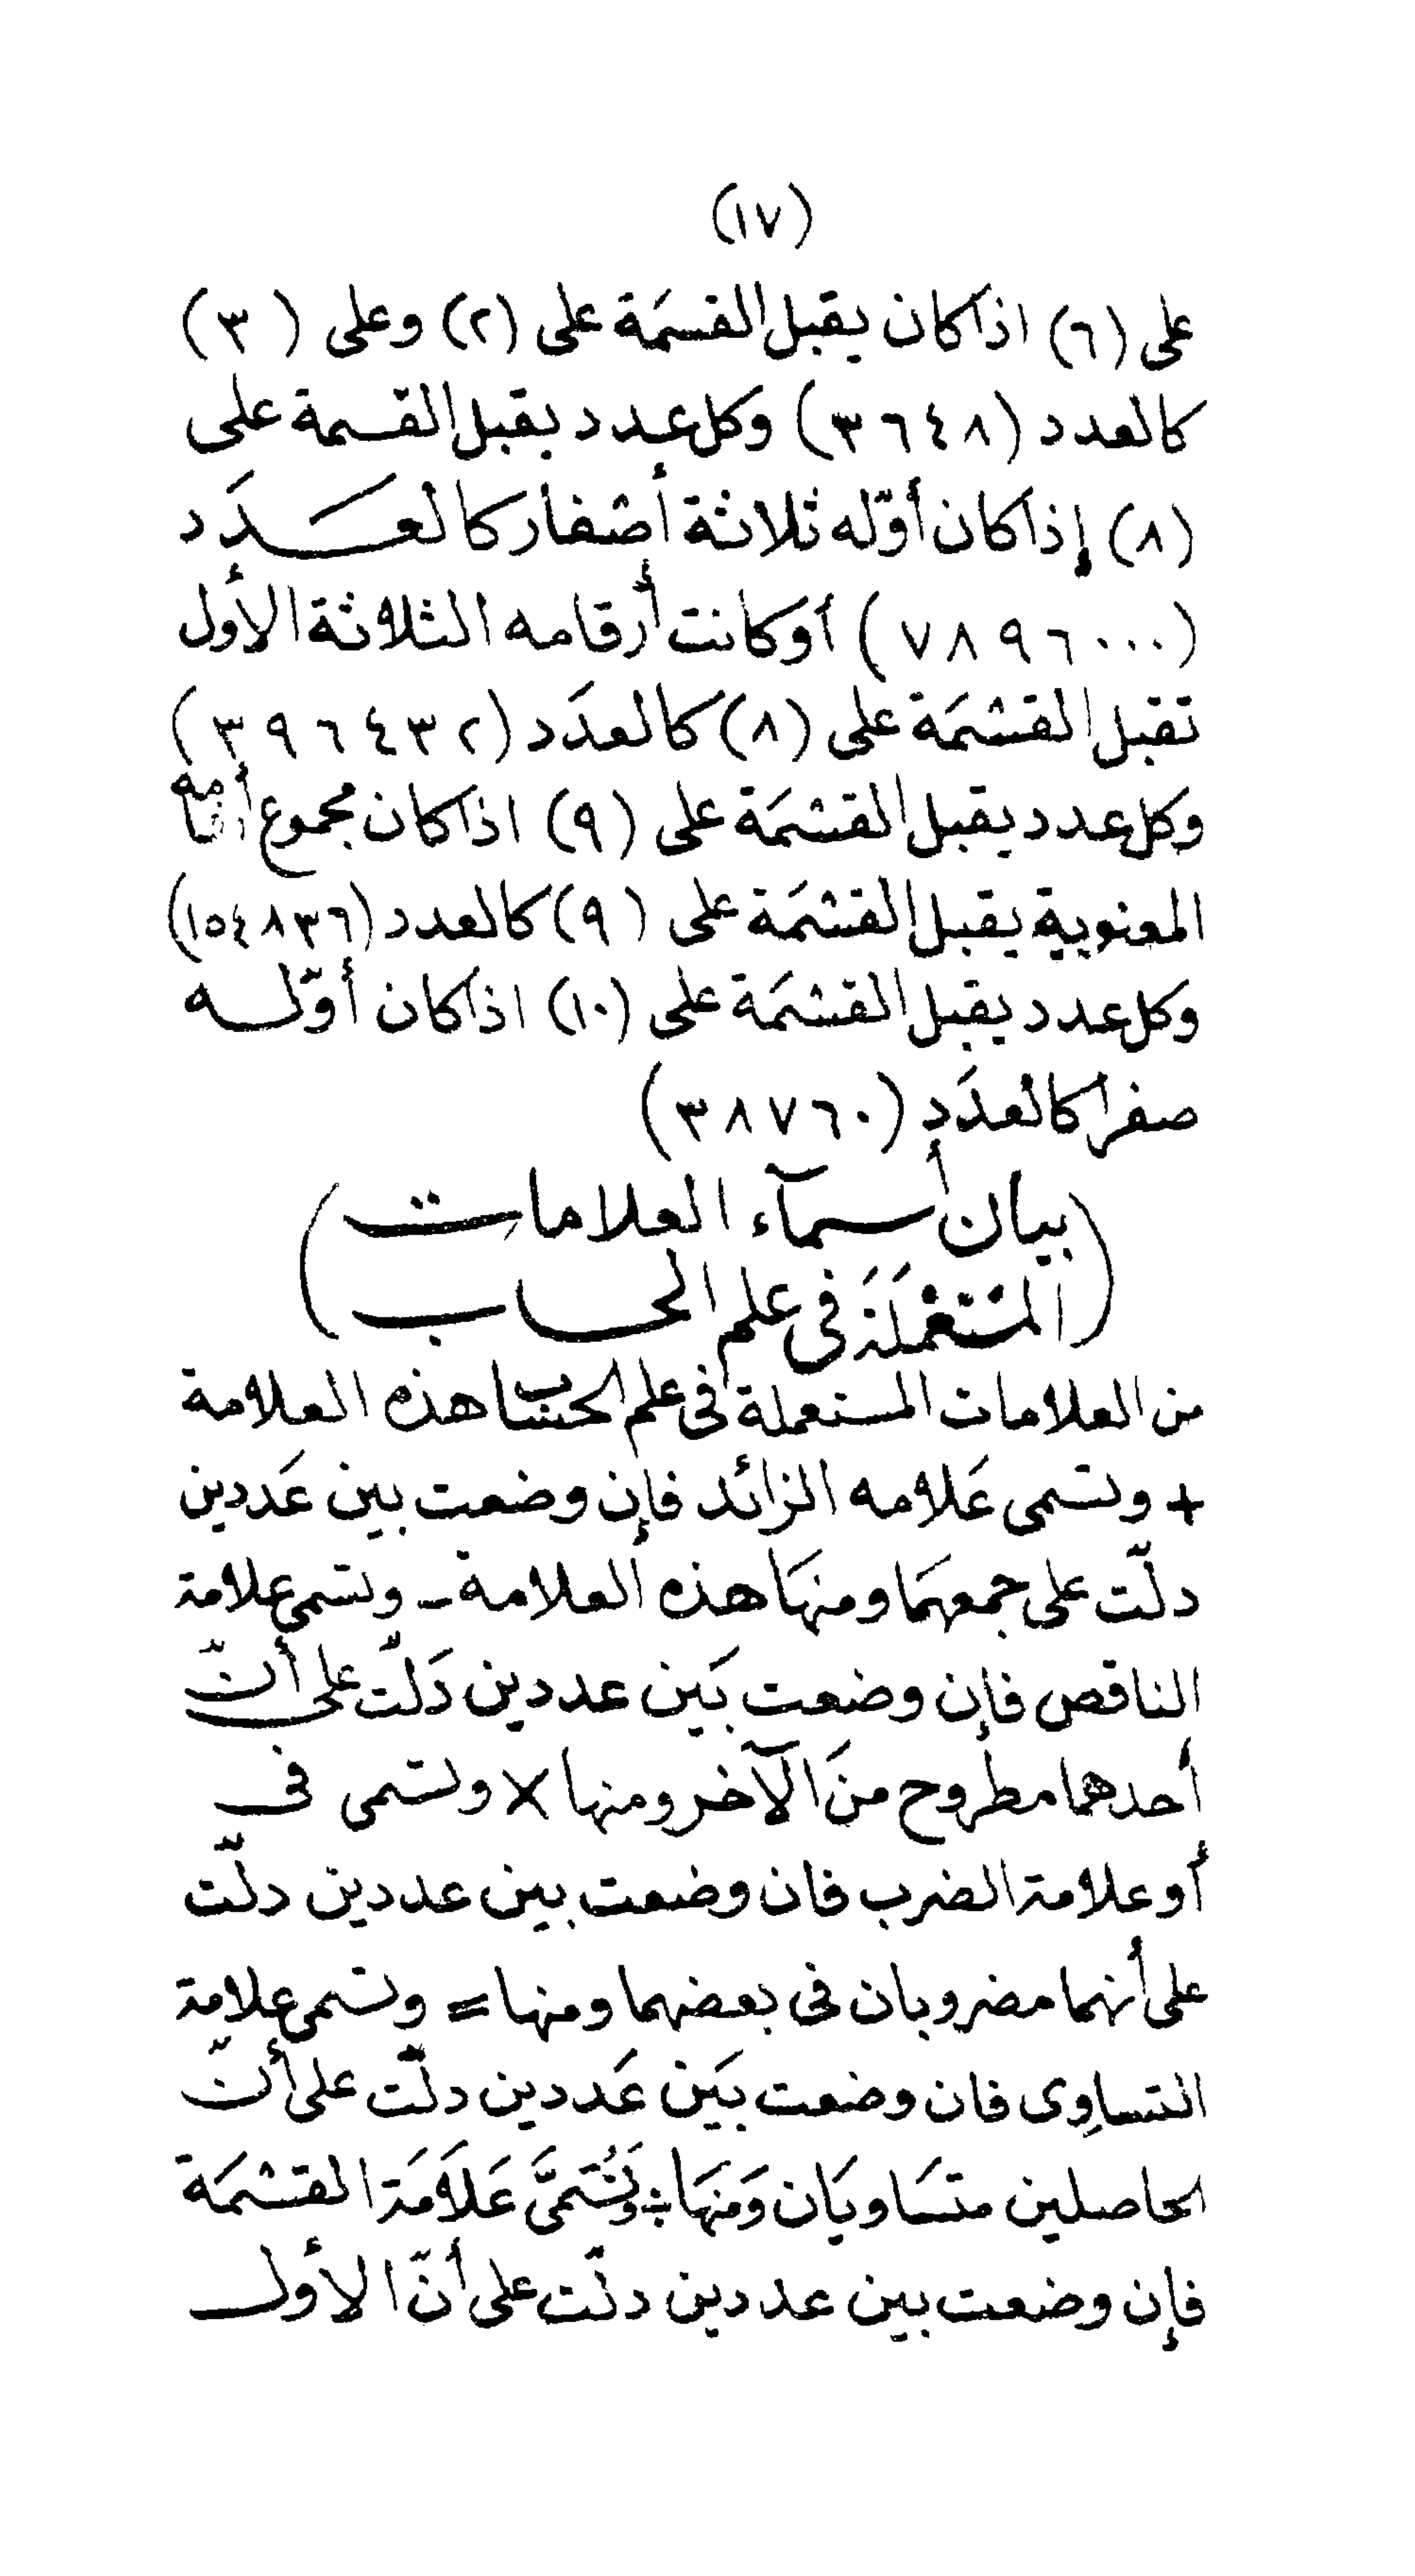 (١٧)
على (٦) اذا كان يقبل القسمَة على (٢) وعلى (٣)
كالعدد (٣٦٤٨) وكل عدد يقبل القسمة على
(٨) إذا كان أوّله ثلاثة أصفار كالعَدَد
(٧٨٩٦٠٠٠) أو كانت أرقامه الثلاثة الأول
تقبل القسْمَة على (٨) كالعدَد (٣٩٦٤٣٢)
وكل عدد يقبل القسْمَة على (٩) اذا كان مجموع أرقامه
المعنوية يقبل القسْمَة على (٩) كالعدد (١٥٤٨٣٦)
وكل عدد يقبل القسْمَة على (١٠) اذا كان أوّله
صفرا كالعدَد (٣٨٧٦٠)
(بيان أسمآء العلامات
المسْتَعْمَلَة فى علم الحساب)
من العلامات المستعملة فى علم الحساب هذه العلامة
+ وتسمى عَلامه الزائد فإن وضعت بين عَددين
دلّت على جمعهمَا ومنهَا هذه العلامة - وتسمى علامة
الناقص فإن وضعت بَين عددين دَلّت على أنّ
أحدهما مطروح منَ الآخر ومنها × وتسمى فى
أو علامة الضرب فان وضعت بين عددين دلّت
على أنهما مضروبان فى بعضهما ومنها = وتسمى علامة
التساوِى فان وضعت بَين عَددين دلّت على أنّ
الحاصلين متسَاويَان وَمنهَا ÷ وَتُسَمَّى عَلاَمَة القسْمَة
فإن وضعت بين عددين دلّت على أنّ الأول